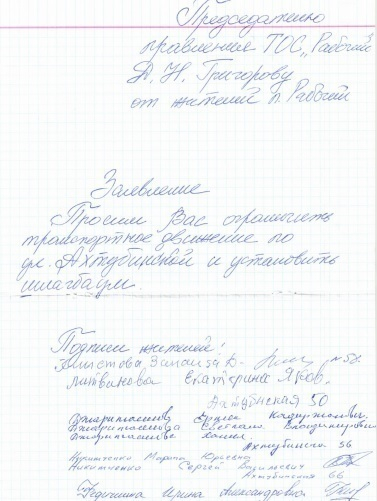 Председателю
правления ТОС „Рабочий"
А. Н. Григорову
от жителей п. Рабочий
Заявление
Просим Вас ограничить
транспортное движение по
ул. Ахтубинской и установить
шлагбаум.
Подписи жителей:
№58.
Литвинова Екатерина
Ахтубинская 50
Ахтубинская 56
Никитченко Марина Юрьевна
Никитченко Сергей Васильевич
Ахтубинская 66
Ирина Александровна